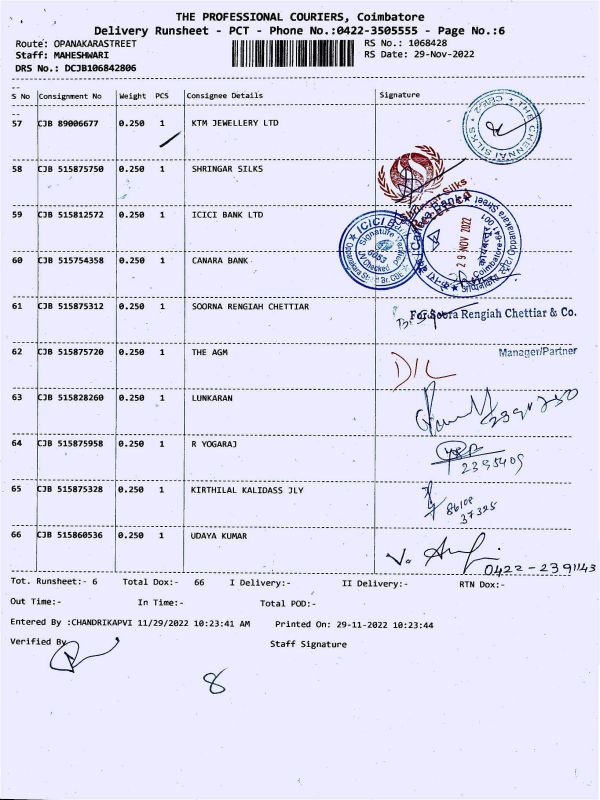 THE PROFESSIONAL COURIERS, Coimbatore
Delivery Runsheet - PCT - Phone No.:0422-3505555 - Page No.:6
Route: OPANAKARASTREET RS No.: 1068428
Staff: MAHESHWARI RS Date: 29-Nov-2022
DRS No.: DCJB106842806
S No Consignment No Weight PCS Consignee Details Signature
57 CJB 89006677 0.250 1 KTM JEWELLERY LTD
THE CHENNAI SILKS
58 CJB 515875750 0.250 1 SHRINGAR SILKS
Shringar Silks
59 CJB 515812572 0.250 1 ICICI BANK LTD
ICICI
Signature
29 NOV 2022
60 CJB 515754358 0.250 1 CANARA BANK
61 CJB 515875312 0.250 1 SOORNA RENGIAH CHETTIAR
For Soora Rengiah Chettiar & Co.
62 CJB 515875720 0.250 1 THE AGM
Manager/Partner
D/L
63 CJB 515828260 0.250 1 LUNKARAN
64 CJB 515875958 0.250 1 R YOGARAJ
2395409
65 CJB 515875328 0.250 1 KIRTHILAL KALIDASS JLY
86108
37325
66 CJB 515860536 0.250 1 UDAYA KUMAR
0422-2391143
Tot. Runsheet:- 6 Total Dox:- 66 I Delivery:- II Delivery:- RTN Dox:-
Out Time:- In Time:- Total POD:-
Entered By :CHANDRIKAPVI 11/29/2022 10:23:41 AM Printed On: 29-11-2022 10:23:44
Verified By Staff Signature
8